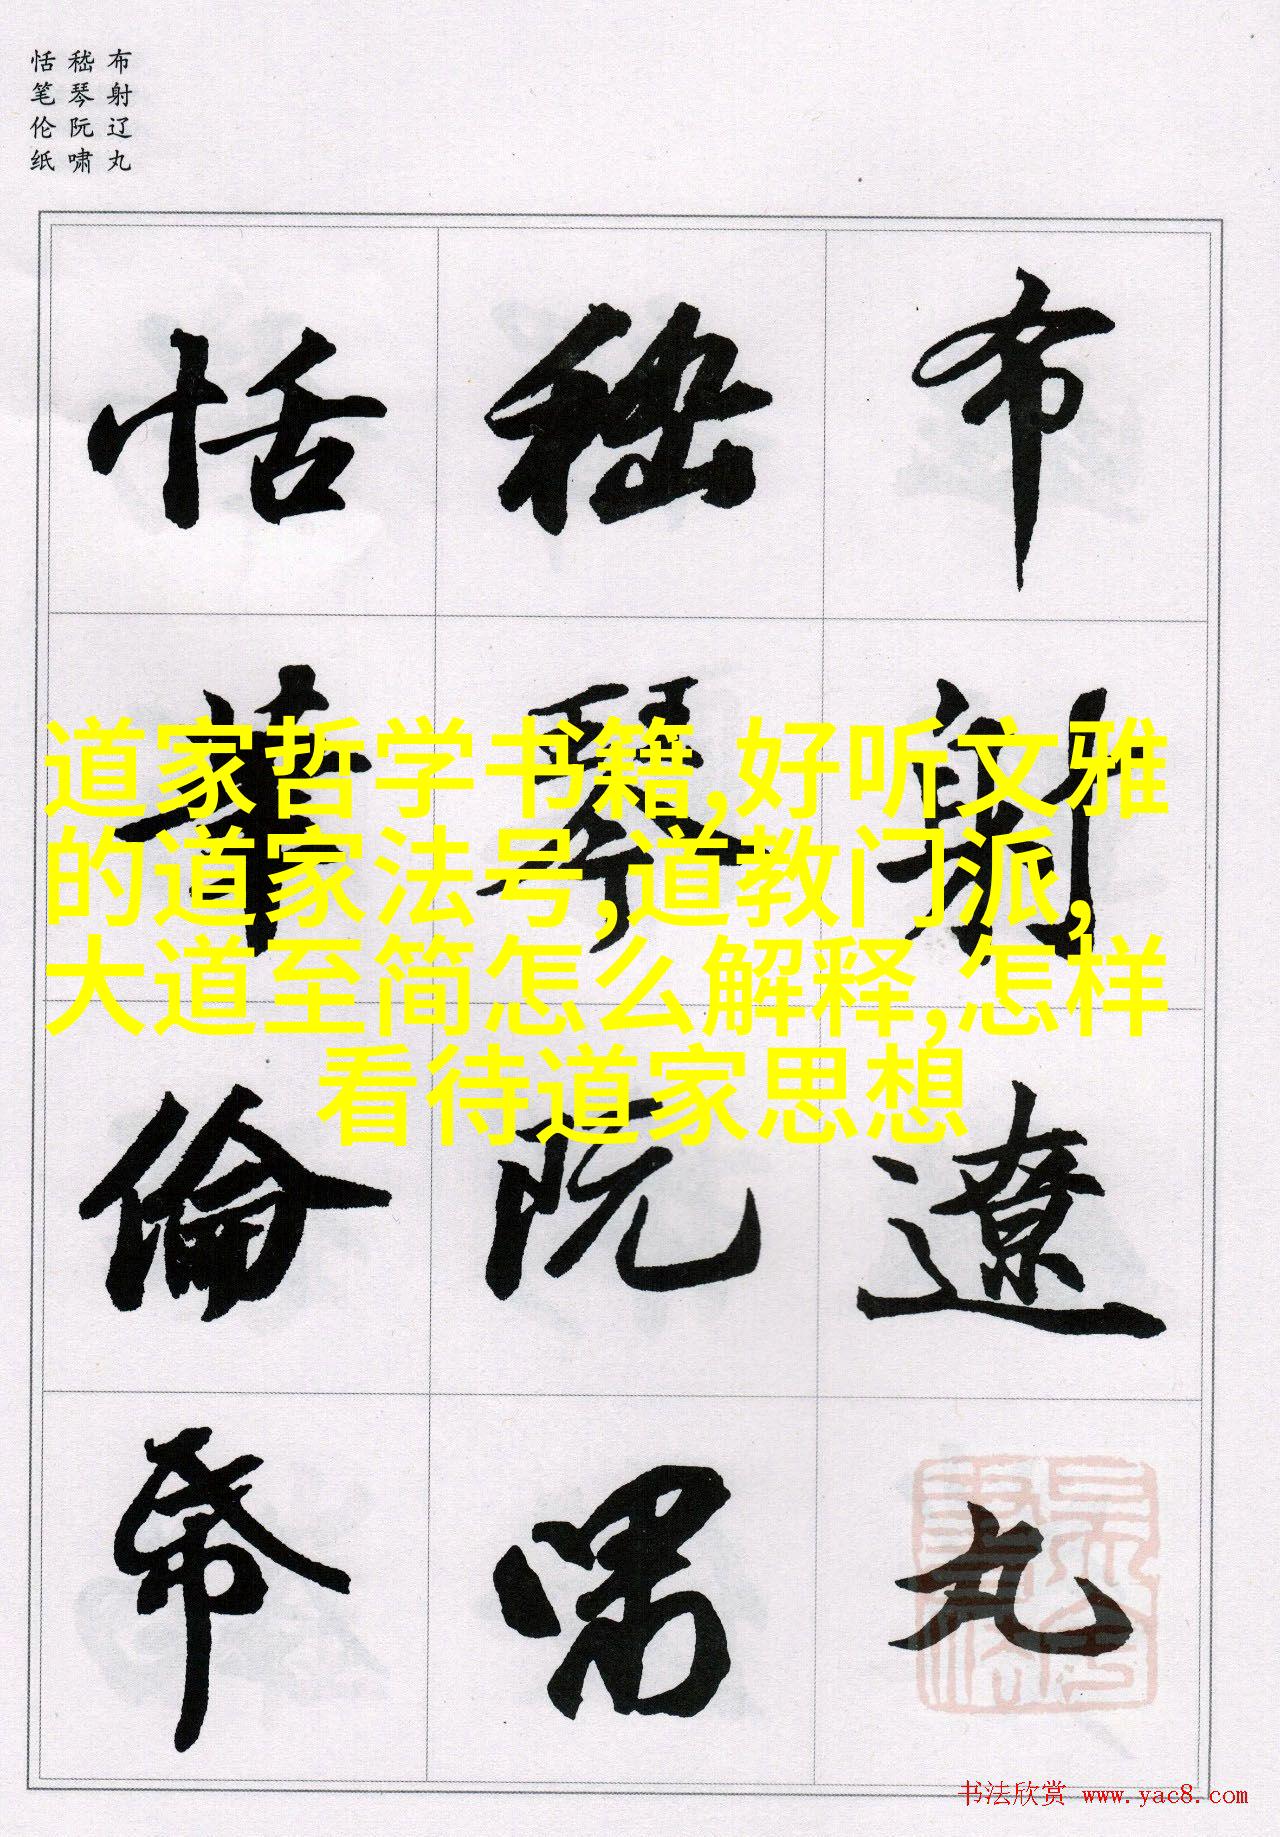 布射辽丸
嵇琴阮啸
恬笔伦纸
布射遼丸
嵇琴阮嘯
恬筆倫帋
道家哲学书籍,好听文雅
的道家法号,道教门派,
大道至简怎么解释,怎样
看待道家思想
书法欣赏 www.yac8.com